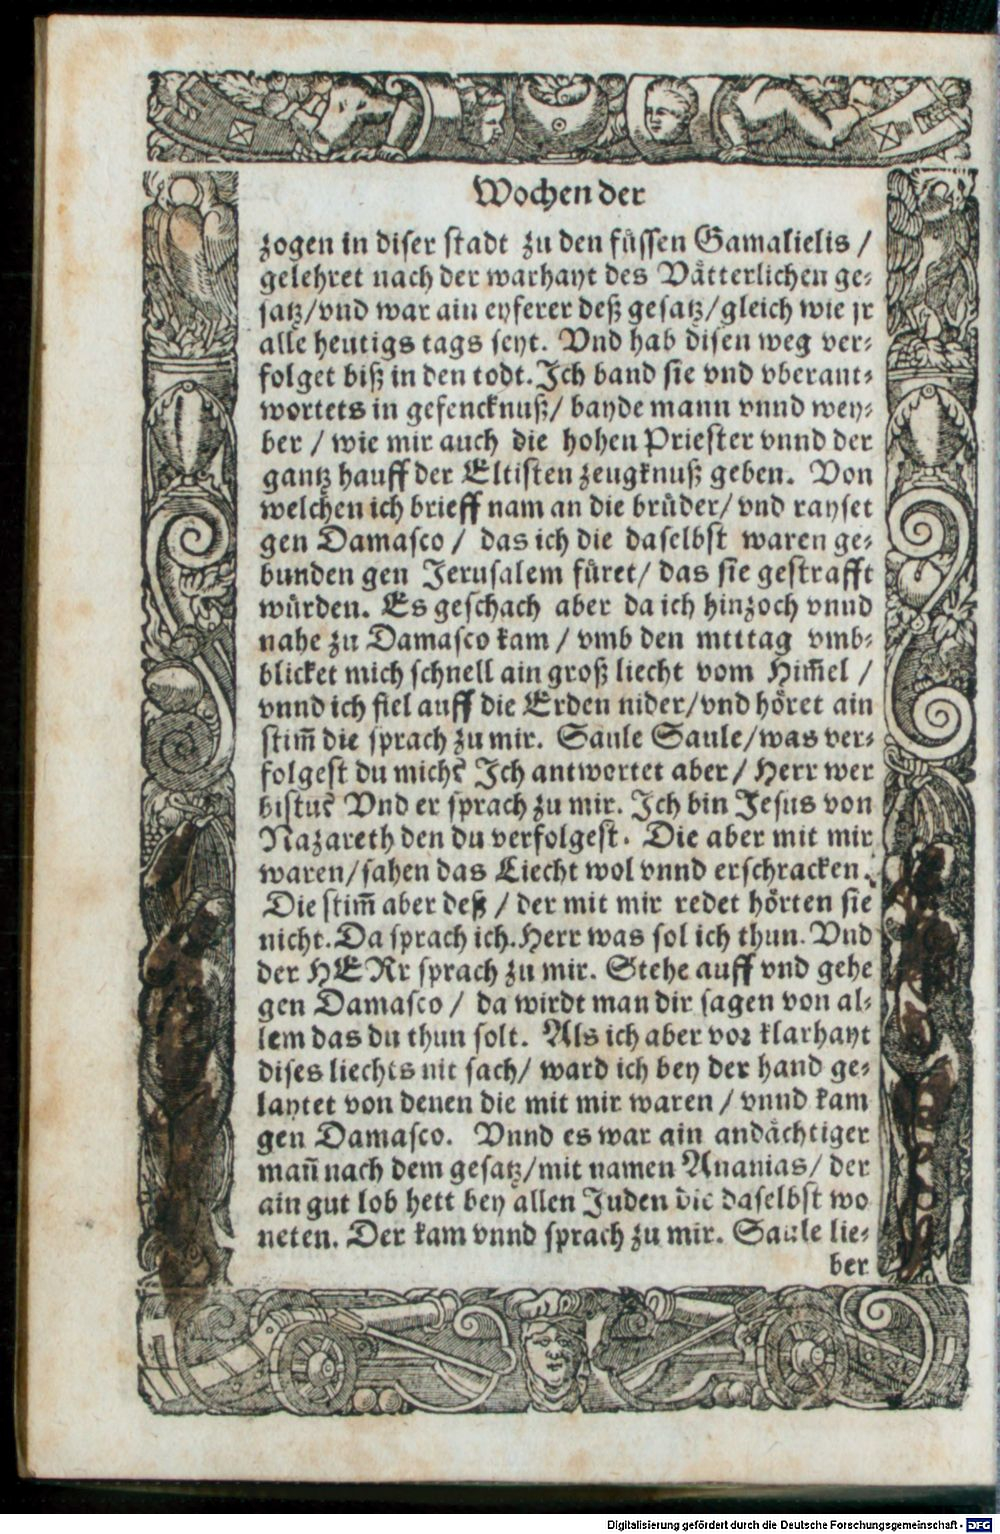 Wochen der
zogen in diser stadt zu den füssen Gamalielis /
gelehret nach der warhayt des Vätterlichen ge⸗
satz/vnd war ain eyferer deß gesatz/gleich wie jr
alle heutigs tags seyt. Vnd hab disen weg ver⸗
folget biß in den todt. Ich band sie vnd vberant⸗
wortets in gefencknuß/ bayde mann vnnd wey⸗
ber / wie mir auch die hohen Priester vnnd der
gantz hauff der Eltisten zeugknuß geben. Von
welchen ich brieff nam an die brüder/ vnd rayset
gen Damasco / das ich die daselbst waren ge⸗
bunden gen Jerusalem füret/ das sie gestrafft
würden. Es geschach aber da ich hinzoch vnnd
nahe zu Damasco kam / vmb den mittag vmb⸗
blicket mich schnell ain groß liecht vom Him̃el /
vnnd ich fiel auff die Erden nider/vnd höret ain
stim̃ die sprach zu mir. Saule Saule/was ver⸗
folgest du mich? Ich antwortet aber / Herr wer
bistu? Vnd er sprach zu mir. Ich bin Jesus von
Nazareth den du verfolgest. Die aber mit mir
waren/sahen das Liecht wol vnnd erschracken.
Die stim̃ aber deß / der mit mir redet hörten sie
nicht. Da sprach ich. Herr was sol ich thun. Vnd
der HERr sprach zu mir. Stehe auff vnd gehe
gen Damasco / da wirdt man dir sagen von al⸗
lem das du thun solt. Als ich aber vor klarhayt
dises liechts nit sach/ ward ich bey der hand ge⸗
laytet von denen die mit mir waren / vnnd kam
gen Damasco. Vnnd es war ain andächtiger
man̄ nach dem gesatz/mit namen Ananias/ der
ain gut lob hett bey allen Juden die daselbst wo
neten. Der kam vnnd sprach zu mir. Saule lie⸗
ber
Digitalisierung gefördert durch die Deutsche Forschungsgemeinschaft - DFG